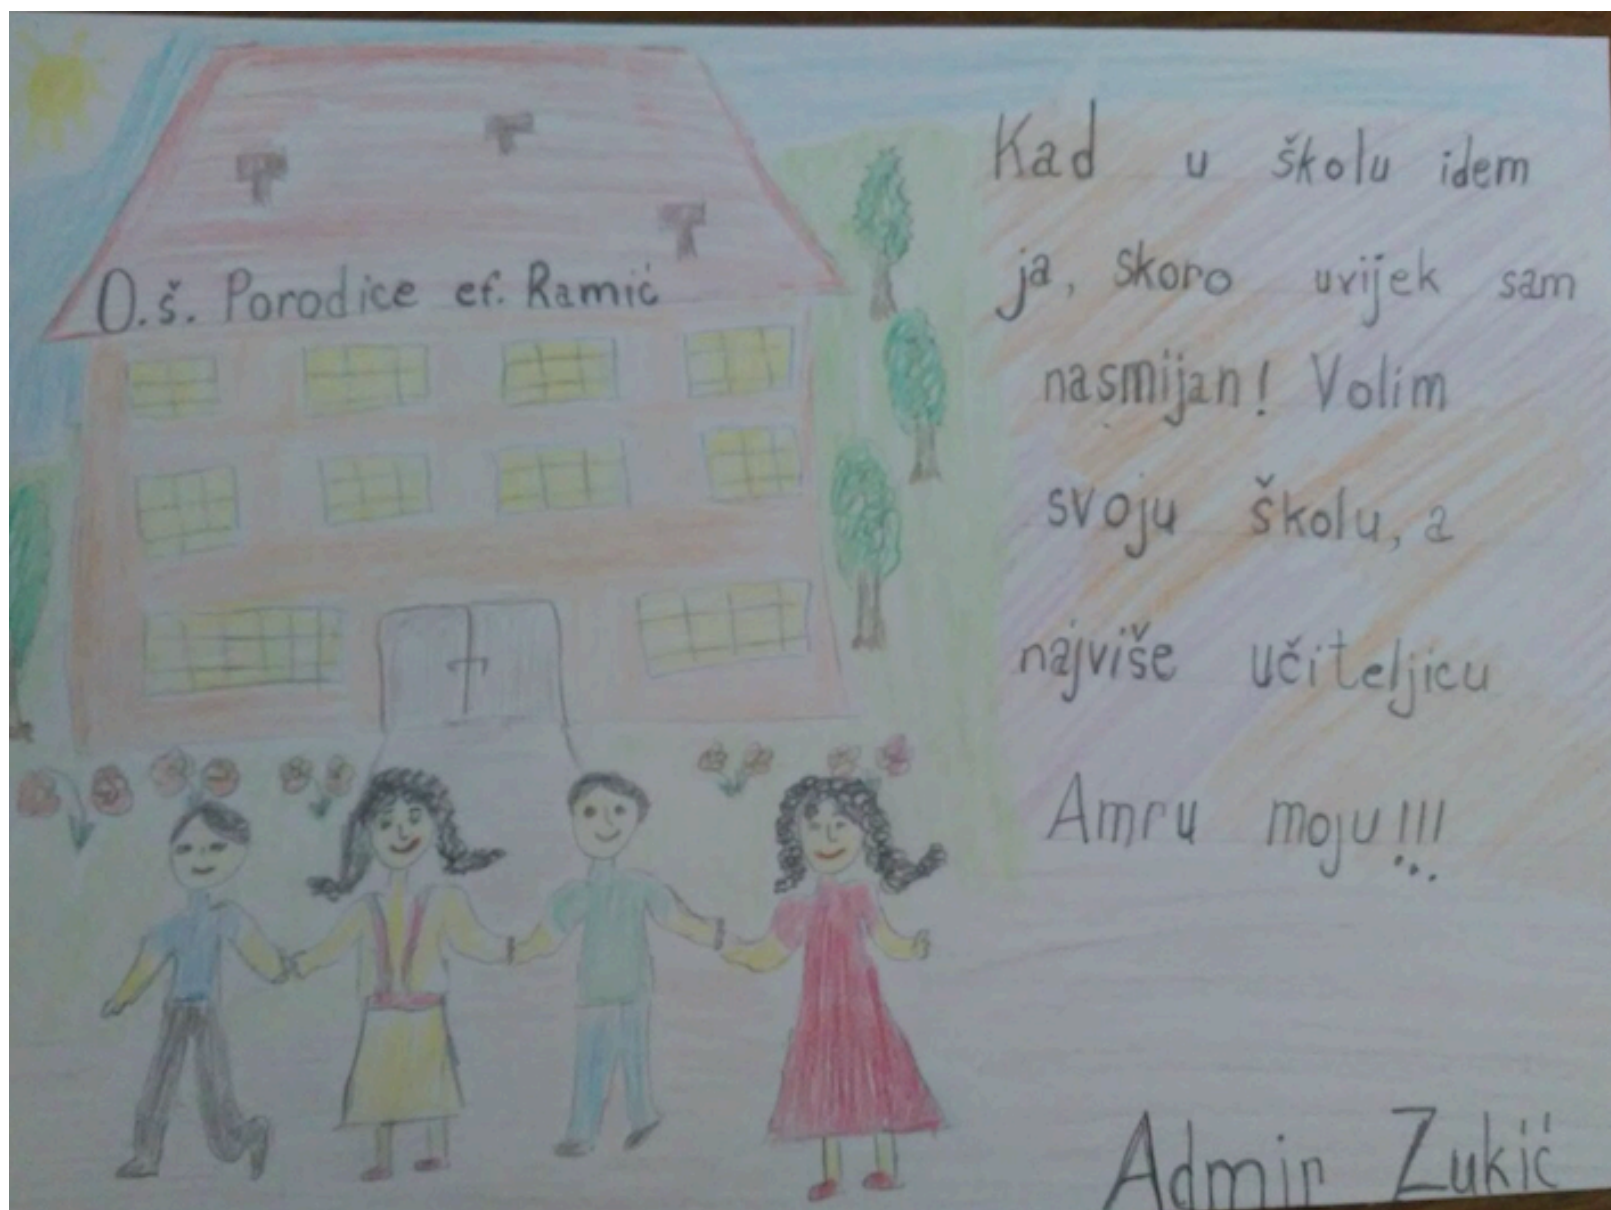 O.š. Porodice ef. Ramić
Kad u školu idem
ja, skoro uvijek sam
nasmijan! Volim
svoju školu, a
najviše učiteljicu
Amru moju!!!
Admir Zukić